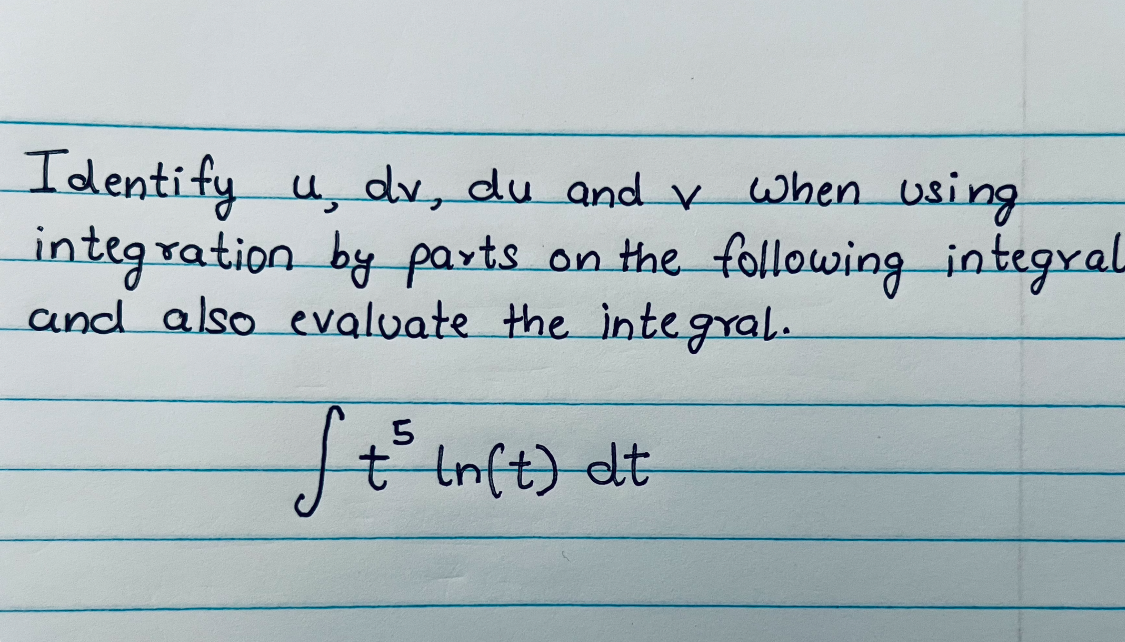 Identify u, dv, du and v when using
integration by parts on the following integral
and also evaluate the integral.
∫ t⁵ ln(t) dt